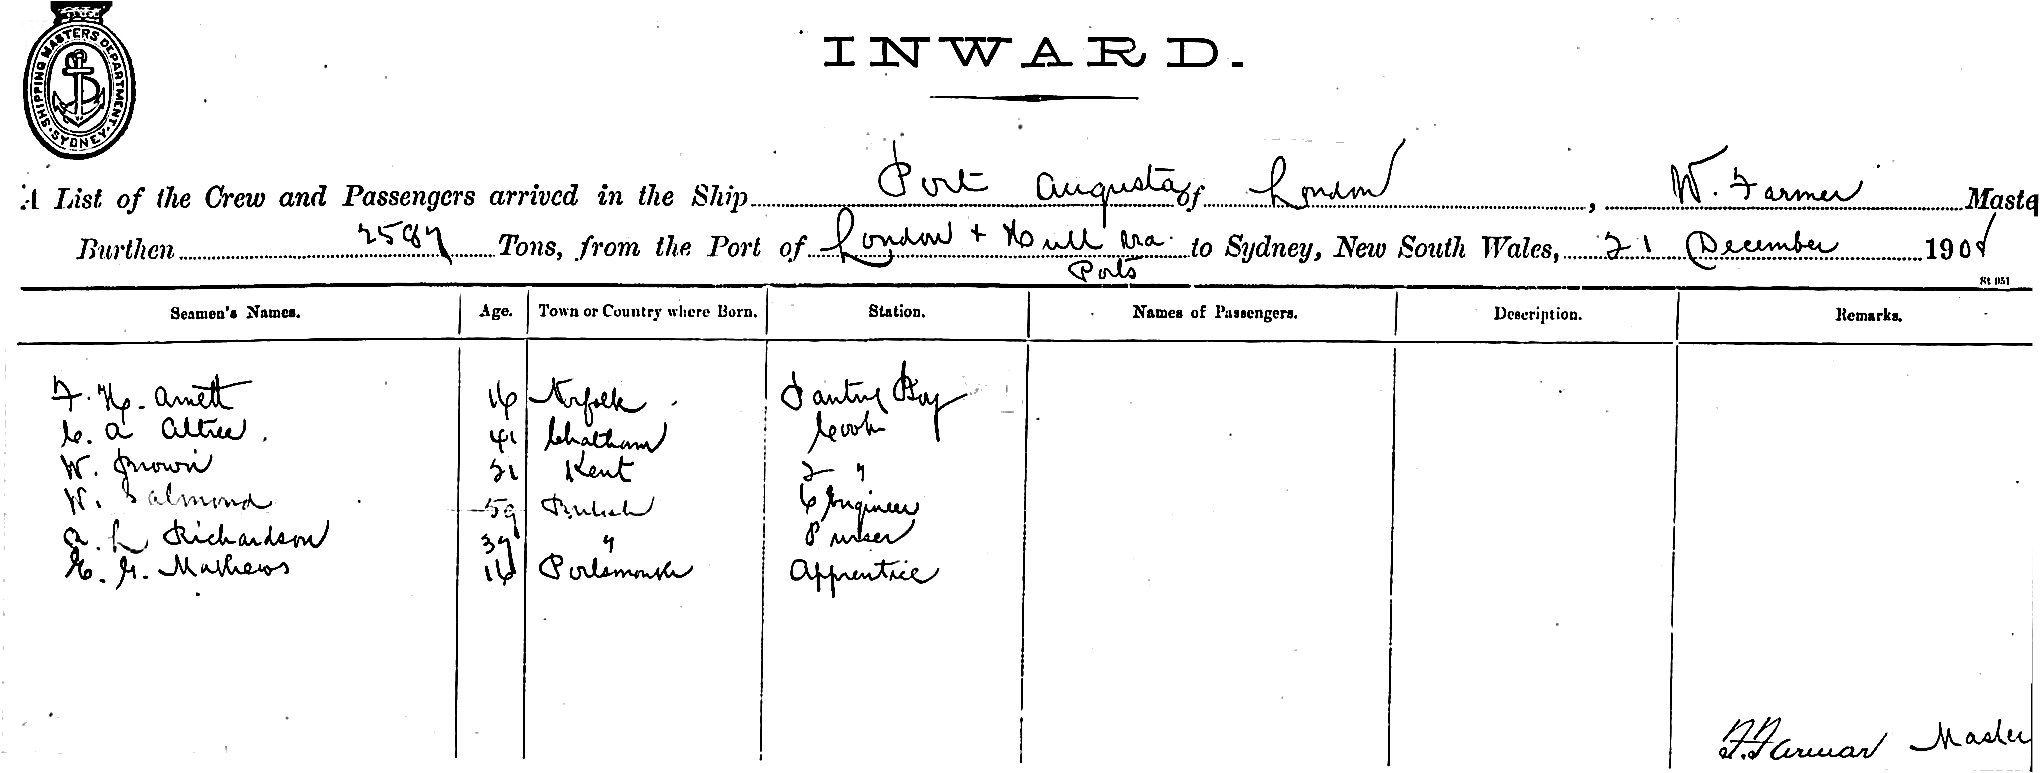 SHIPPING MASTERS DEPARTMENT. SYDNEY
INWARD.
A List of the Crew and Passengers arrived in the Ship Port Augusta of London, W. Farmer Maste
Burthen 2587 Tons, from the Port of London + Hull via Ports to Sydney, New South Wales, 21 December 190
St 951
Seamen's Names. Age. Town or Country where Born. Station. Names of Passengers. Description. Remarks.
F. H. Arnett 16 Norfolk Pantry Boy
C. A Attree 41 Chatham Cook
W. Brown 21 Kent 2 "
W. Salmond 59 British C Engineer
A. L Richardson 39 " Purser
E. G. Mathews 16 Portsmouth Apprentice
Farmer Master